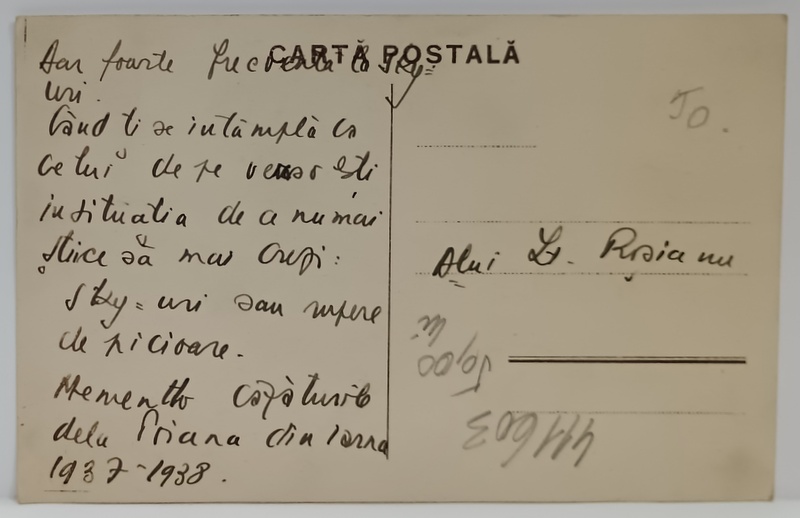 CARTĂ POSTALĂ
Dar foarte frecventa la sky=
uri.
Când ti se intâmplă ca
celui de pe verso esti
in situatia de a nu mai
stii ce să mai crezi:
Sky=uri sau rupere
de picioare.
Memento căzăturilo
dela Poiana din iarna
1937-1938.
50.
Dlui Lt. Rosianu
50,00
lei
411603